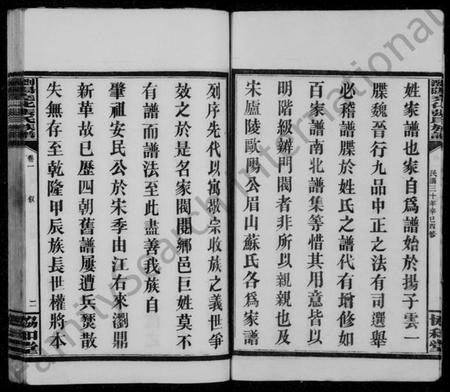 姓家譜也家自爲譜始於揚子雲一
牒魏晉行九品中正之法有司選舉
必稽譜牒於姓氏之譜代有增修如
百家譜南北譜集等惜其用意皆以
明階級辨門閥者非所以親親也及
宋廬陵歐陽公眉山蘇氏各爲家譜
民國三十年辛巳四修
協和堂
列序先代以寓敬宗收族之義世爭
效之於是名家閥閱鄉邑巨姓莫不
有譜而譜法至此盡善我族自
肇祖安民公於宋季由江右來瀏鼎
新革故已歷四朝舊譜屢遭兵燹散
失無存至乾隆甲辰族長世權將本
卷一
敘
二
協和堂
FamilySearch International